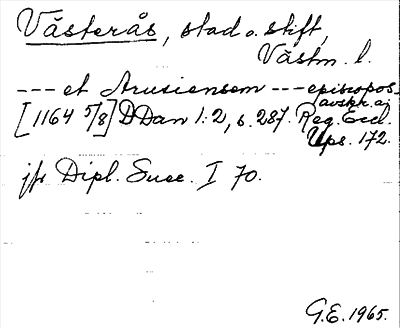 Västerås, stad o. stift,
Västm. l.
--- et Arusiensem --- episcopos
(avskr. aj
[1164 5/8] DDan 1:2, s. 287. Reg. Eccl.
Ups. 172.
jfr Dipl. Suec. I 70.
G.E. 1965.